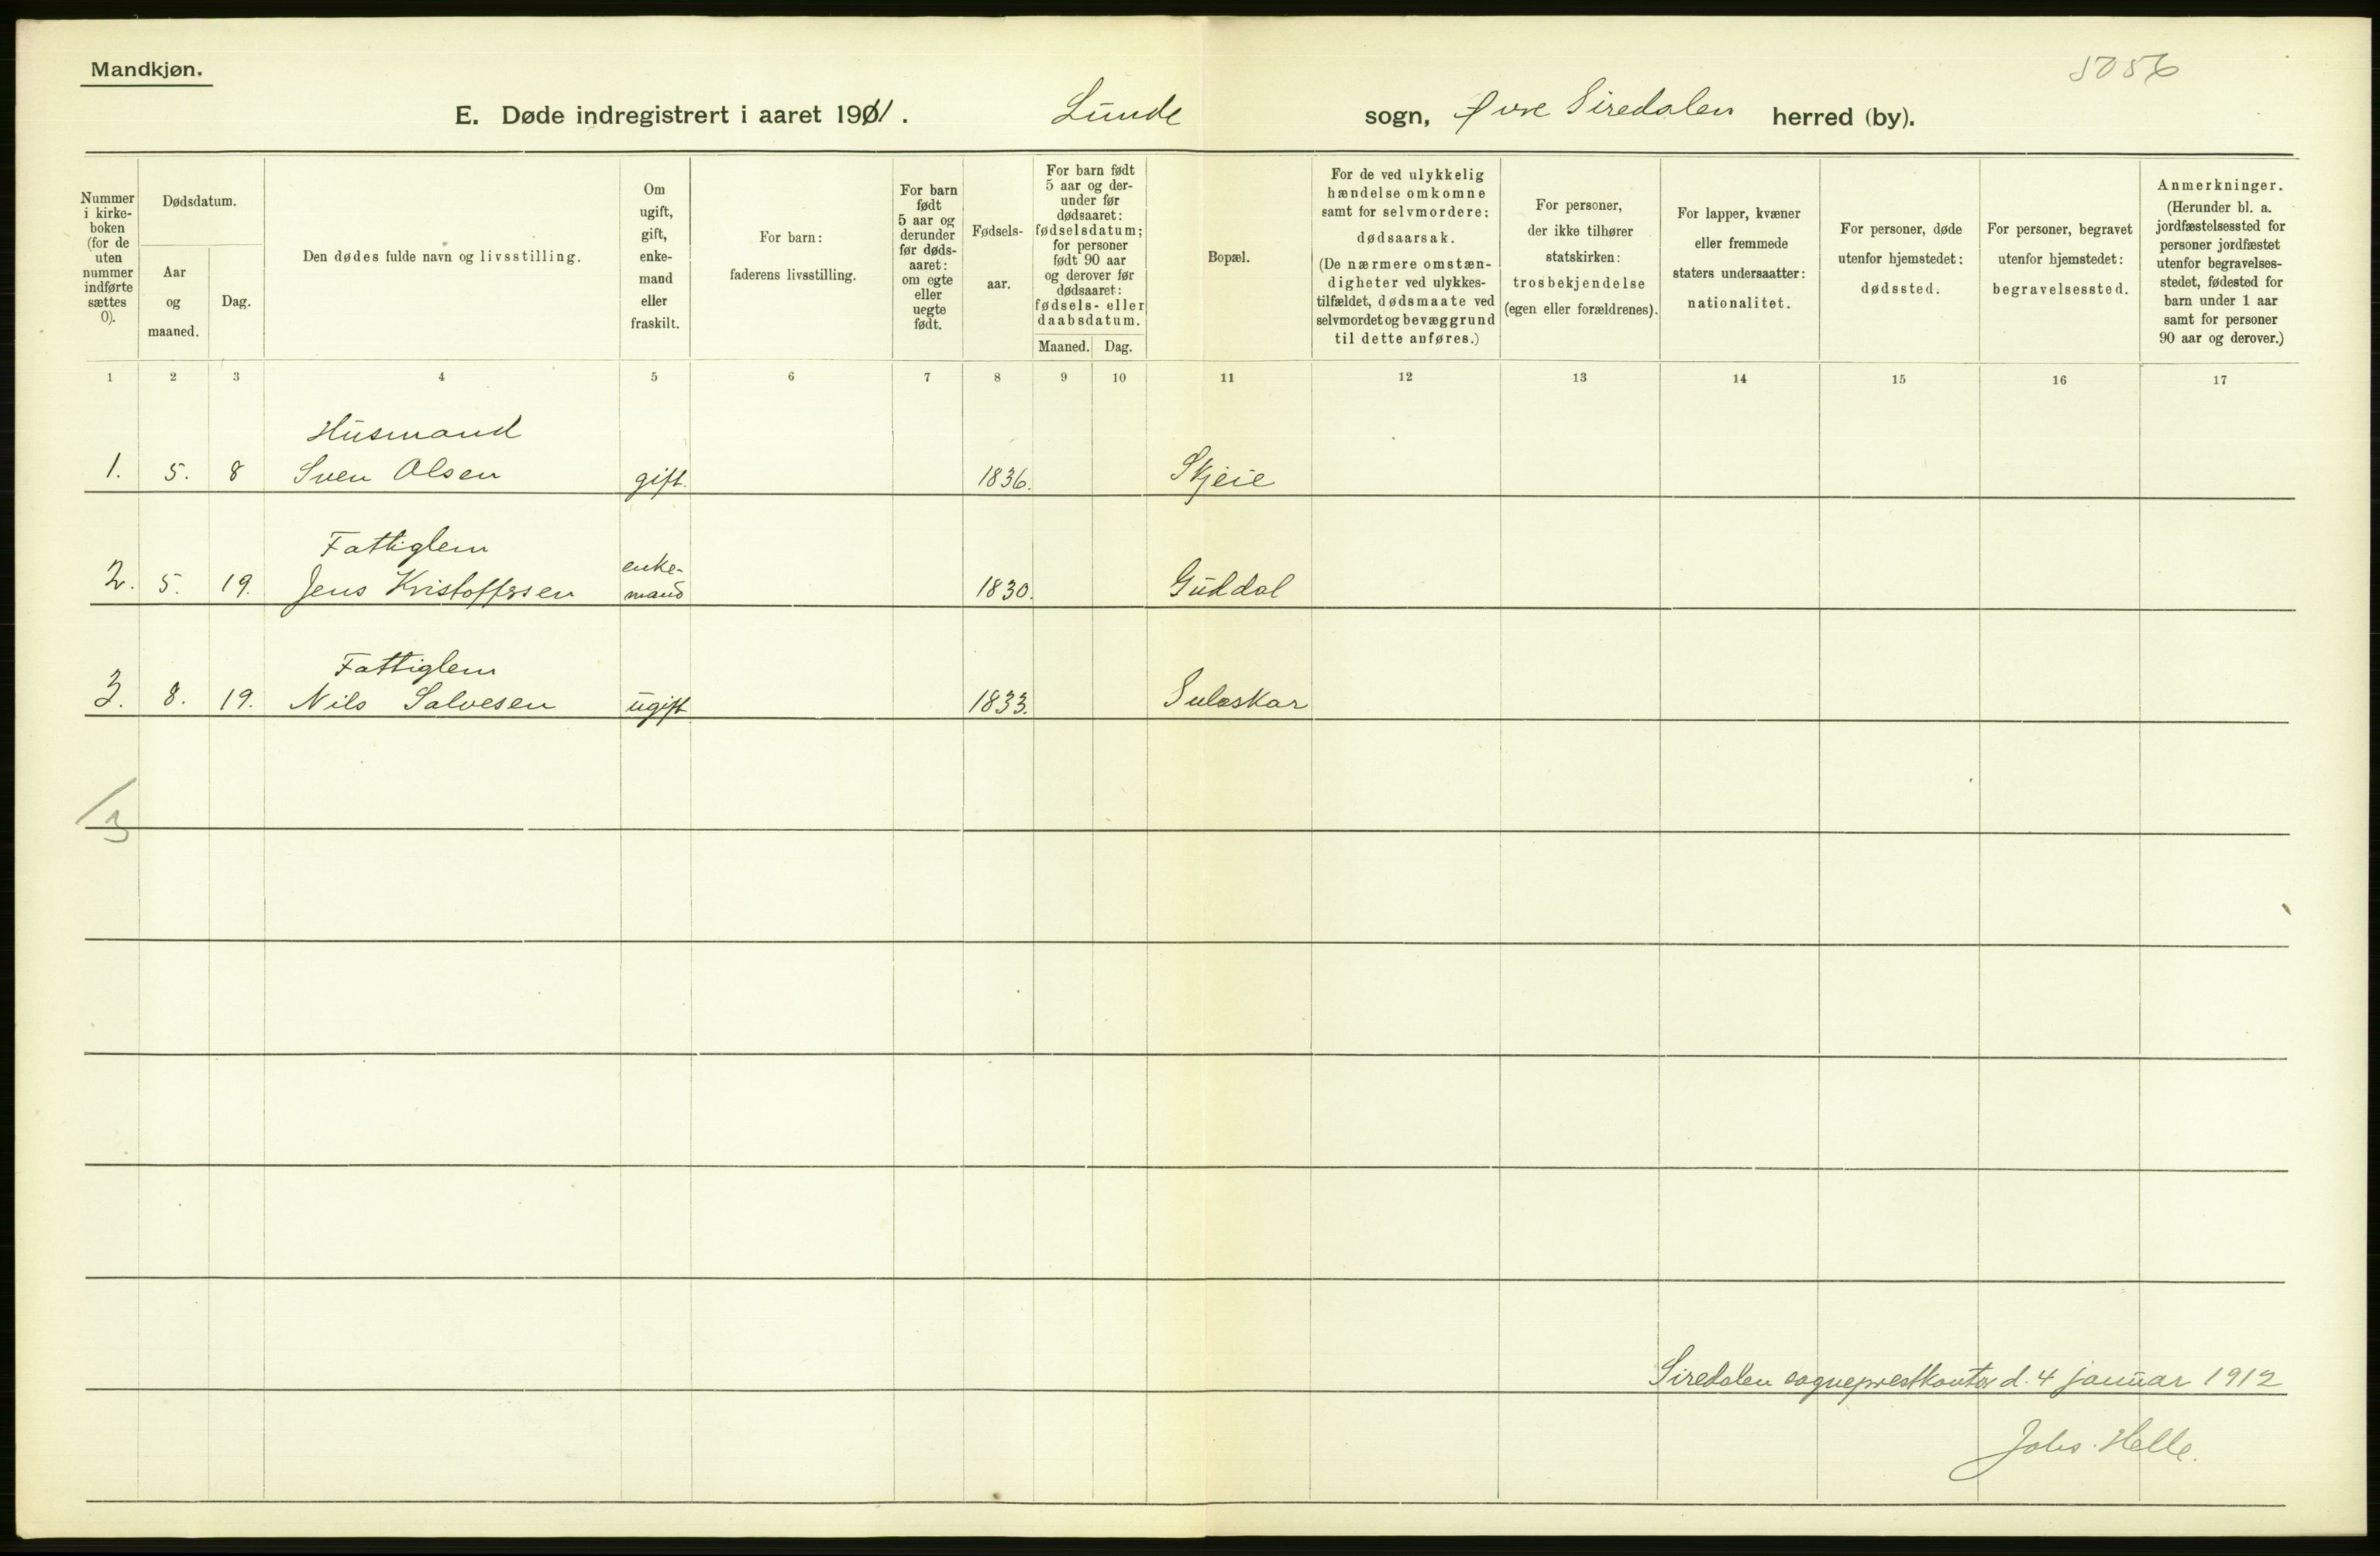 Mandkjøn.
5056
E. Døde indregistrert i aaret 1911. Lunde sogn, Øvre Siredalen herred (by).
Nummer i kirkeboken (for de uten nummer indførte sættes 0).
Dødsdatum.
Aar og maaned.
Dag.
Den dødes fulde navn og livsstilling.
Om ugift, gift, enkemand eller fraskilt.
For barn: faderens livsstilling.
For barn født 5 aar og derunder før dødsaaret: om egte eller uegte født.
Fødselsaar.
For barn født 5 aar og derunder før dødsaaret: fødselsdatum; for personer født 90 aar og derover før dødsaaret: fødsels- eller daabsdatum.
Maaned. Dag.
Bopæl.
For de ved ulykkelig hændelse omkomne samt for selvmordere: dødsaarsak. (De nærmere omstændigheter ved ulykkestilfældet, dødsmaate ved selvmordet og bevæggrund til dette anføres.)
For personer, der ikke tilhører statskirken: trosbekjendelse (egen eller forældrenes).
For lapper, kvæner eller fremmede staters undersaatter: nationalitet.
For personer, døde utenfor hjemstedet: dødssted.
For personer, begravet utenfor hjemstedet: begravelsessted.
Anmerkninger. (Herunder bl. a. jordfæstelsessted for personer jordfæstet utenfor begravelsesstedet, fødested for barn under 1 aar samt for personer 90 aar og derover.)
1 2 3 4 5 6 7 8 9 10 11 12 13 14 15 16 17
Husmand
1. 5. 8 Sven Olsen gift. 1836. Skjeie
Fattiglem
2. 5. 19. Jens Kristoffersen enke-mand 1830. Guddal
Fattiglem
3. 8. 19. Nils Salvesen ugift 1833. Suleskar
/3
Siredalen sogneprestkontor d. 4 januar 1912
Johs. Helle.